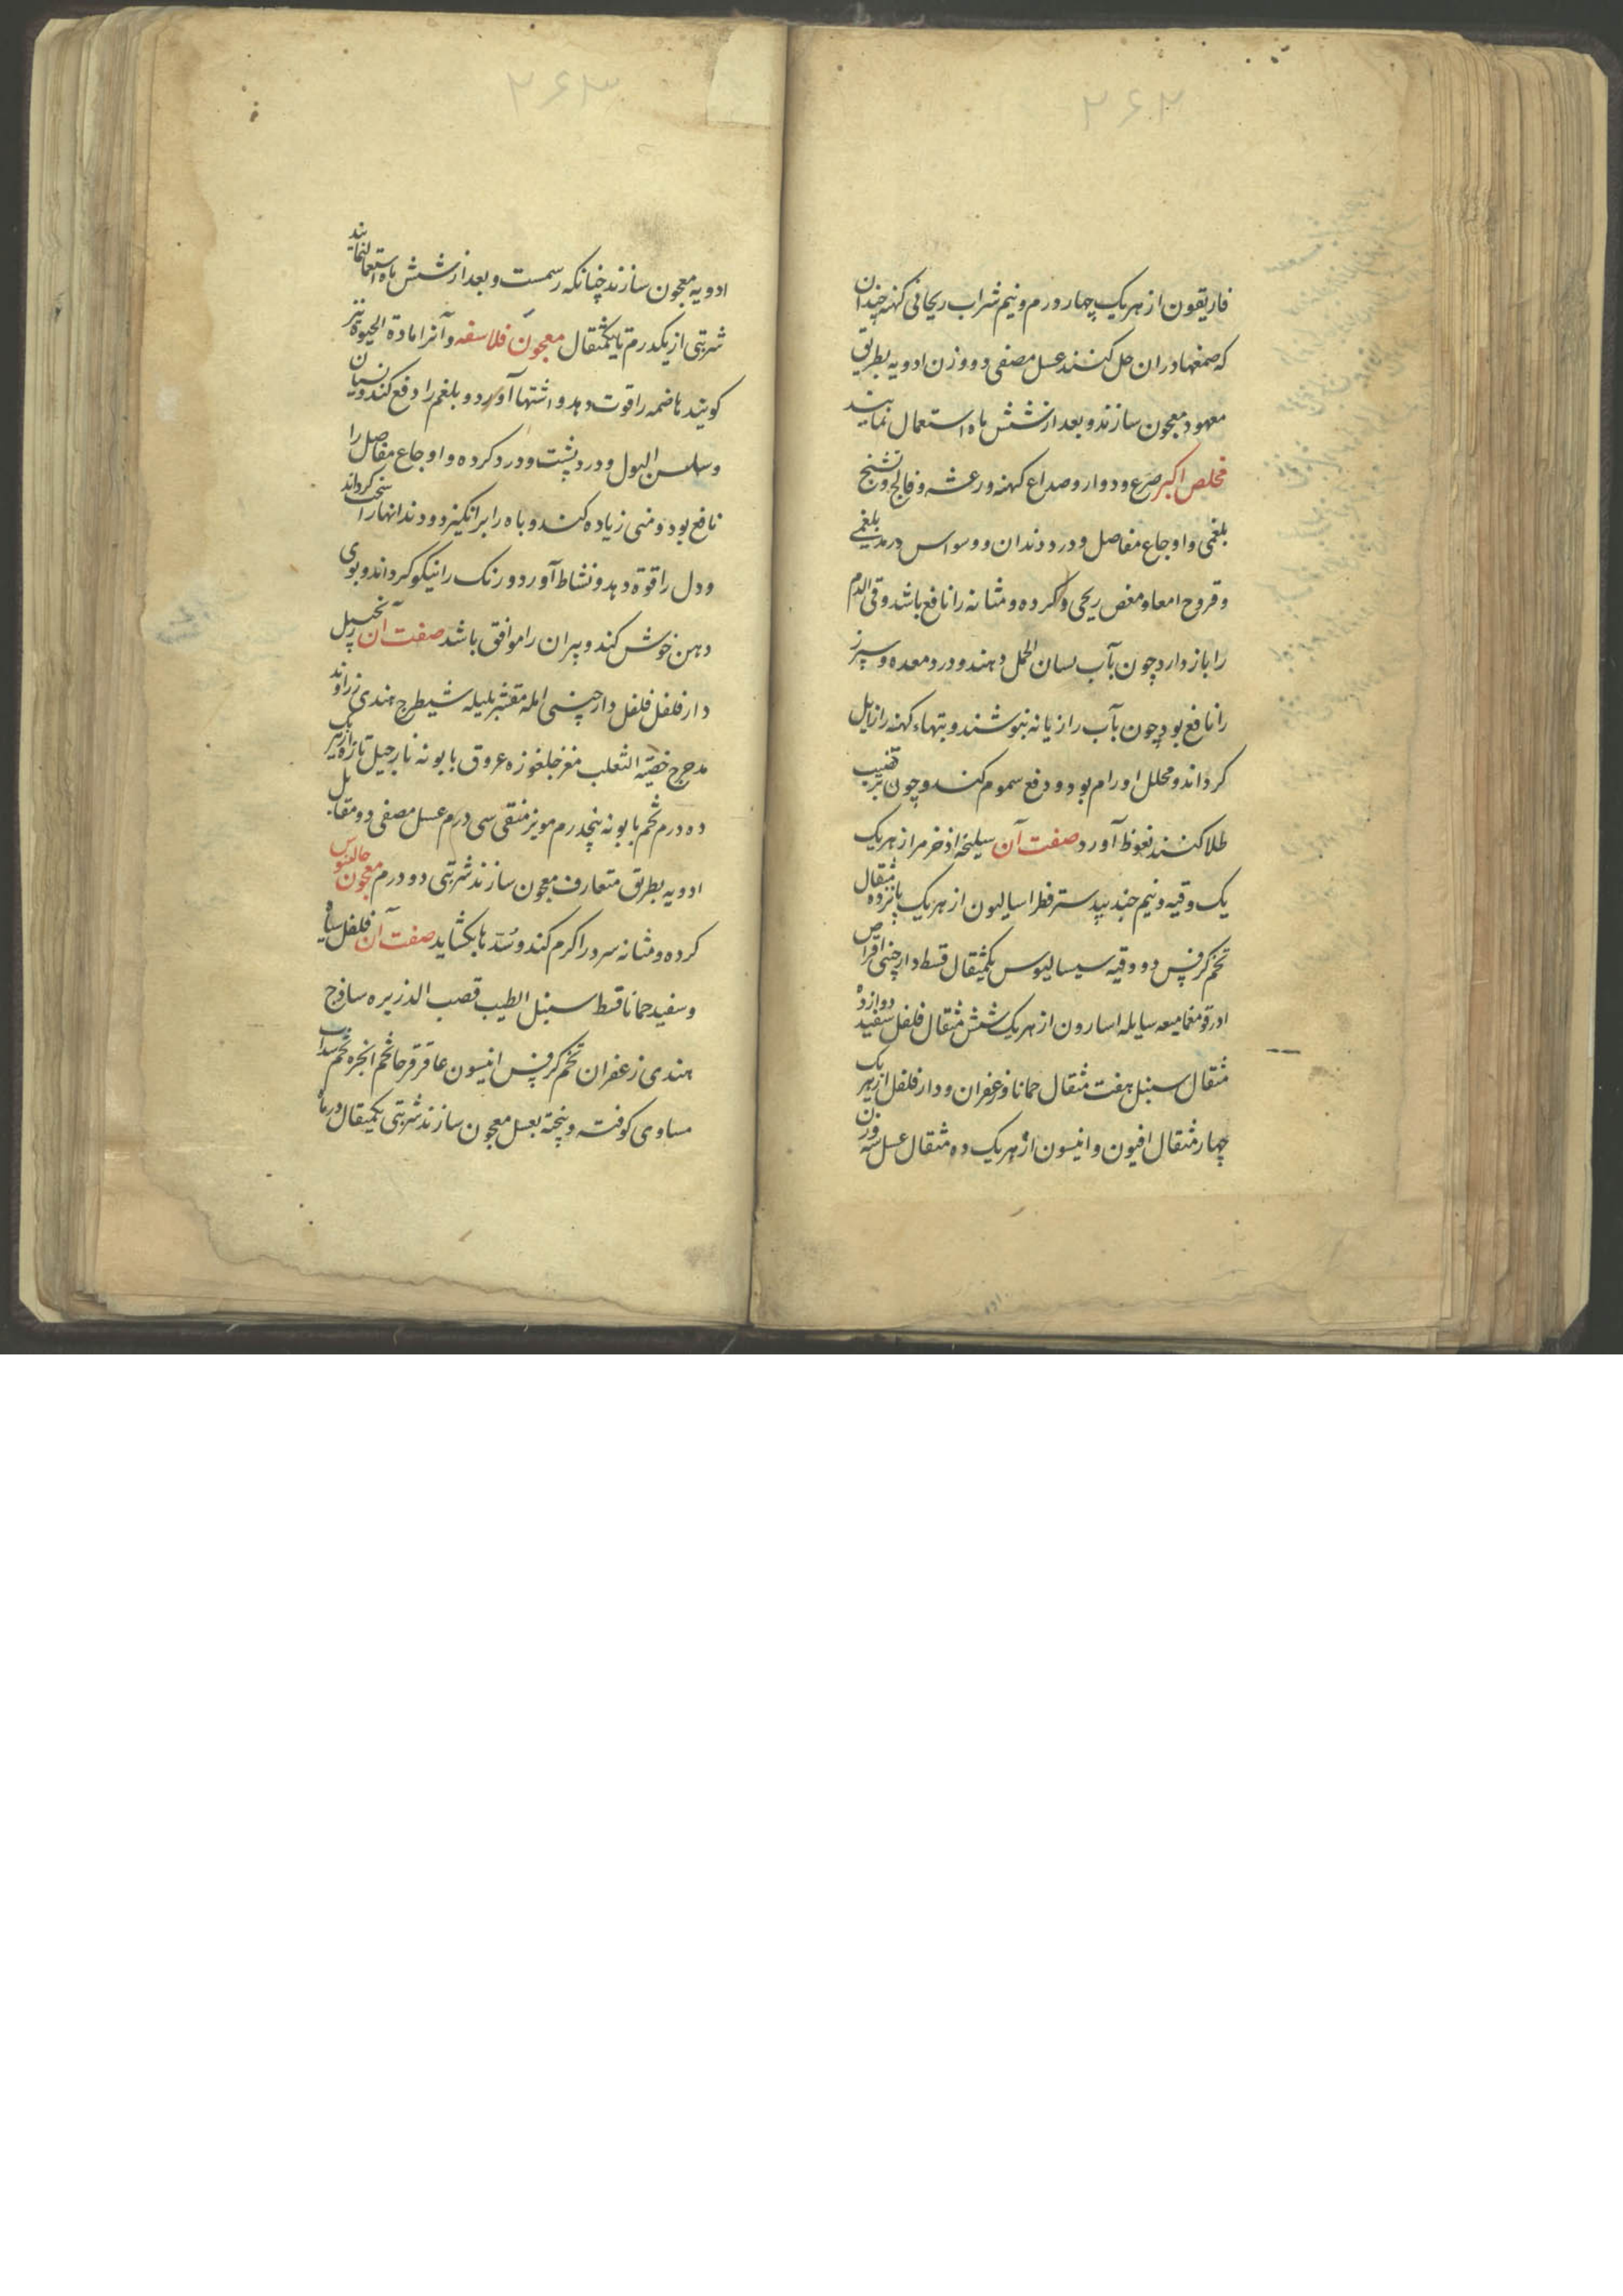 ۲۶۲
فاریقون از هر یک چهار درم و نیم شراب ریحانی کهنه چندان
که صمغها در ان حل کنند عسل مصفی دو وزن ادویه بطریق
معهود معجون سازند و بعد از شش ماه استعمال نمایند
مخلص اکبر صرع و دوار و صداع کهنه و رعشه و فالج و تشنج
بلغمی و اوجاع مفاصل و درد دندان و وسواس
و قروح امعا و مغص ریحی و کرده و مثانه را نافع باشد و قی الدم
را باز دارد چون بآب لسان الحمل دهند و درد معده و سپرز
را نافع بود چون بآب رازیانه بنوشند و تبهاء کهنه را زایل
کرداند و محلل اورام بود و دفع سموم کند و چون بر قضیب
طلا کنند نعوظ آورد صفت آن سلیخه اذخر مر از هر یک
یک وقیه و نیم جند بیدستر فطر اسالیون از هر یک پانزده مثقال
تخم کرفس دو وقیه سیسالیوس یکمثقال قسط دارچینی اقراص
ادرقومغما میعه سایله اسارون از هر یک شش مثقال فلفل سفید دوازده
مثقال سنبل هفت مثقال حماما و زعفران و دار فلفل از هر یک
چهار مثقال افیون و انیسون از هر یک ده مثقال عسل سه وزن
۲۶۳
ادویه معجون سازند چنانکه رسمست و بعد از شش ماه استعمال نمایند
شربتی از یکدرم تا یکمثقال معجون فلاسفه و آنرا مادة الحیوة نیز
کویند هاضمه را قوت دهد و اشتها آورد و بلغم را دفع کند و نسیان
و سلس البول و درد پشت و درد کرده و اوجاع مفاصل را
نافع بود و منی زیاده کند و باه را برانکیزد و دندانها را سخت کرداند
و دل را قوة دهد و نشاط آورد و رنک را نیکو کرداند و بوی
دهن خوش کند و پیران را موافق باشد صفت آن زنجبیل
دار فلفل فلفل دارچینی امله مقشر بلیله شیطرج هندی زراوند
مدحرج خصیة الثعلب مغز جلغوزه عروق بابونه نارجیل تازه از هر یک
ده درم تخم بابونه پنجدرم مویز منقی سی درم عسل مصفی دو مقابل
ادویه بطریق متعارف معجون سازند شربتی دو درم معجون جالینوس
کرده و مثانه سرد را کرم کند و سُدّها بکشاید صفت آن فلفل سیاه
و سفید حماما قسط سنبل الطیب قصب الذریره ساذج
هندی زعفران تخم کرفس انیسون عاقرقرحا تخم انجره تخم سداب
مساوی کوفته و پخته بعسل معجون سازند شربتی یکمثقال در ماء